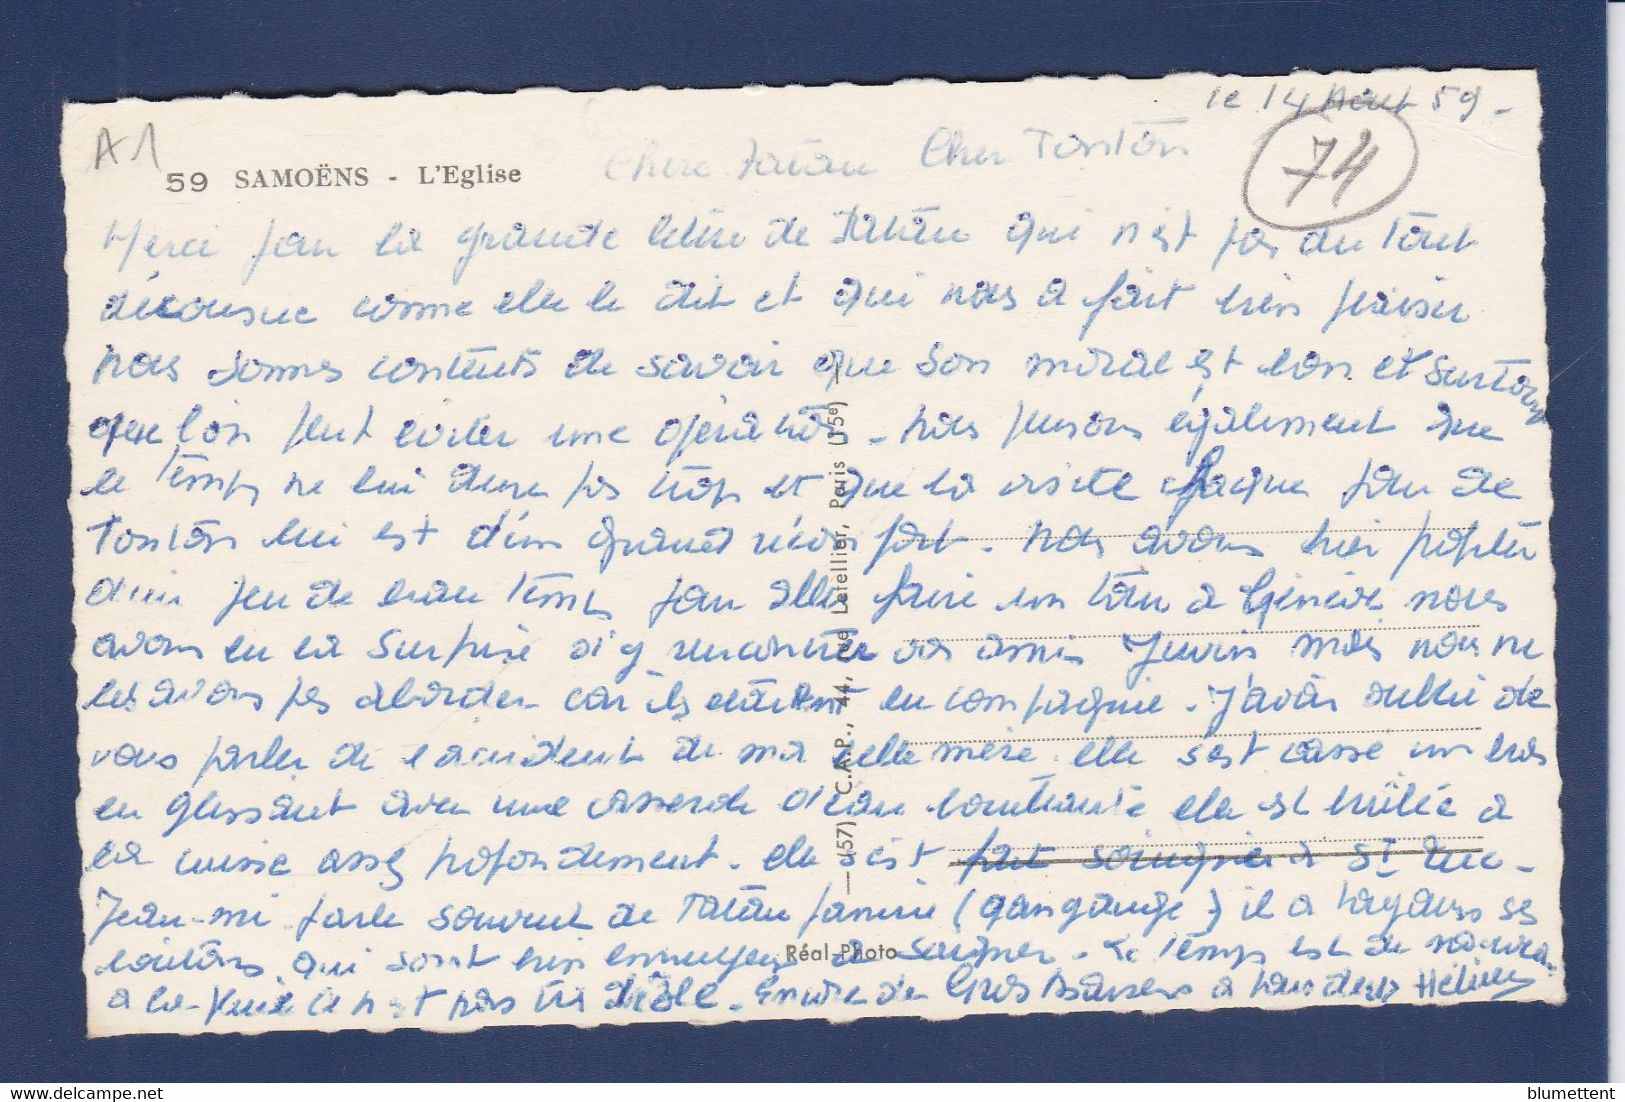 le 14 Août 59 -
A1
74
59 SAMOËNS - L'Eglise
Chère Tatan Cher Tonton
Merci pour la grande lettre de Tatan qui n'est pas du tout
décousue comme elle le dit et qui nous a fait bien plaisir
nous sommes contents de savoir que son moral est bon et surtout
que l'on peut éviter une opération - nous pensons également que
le temps ne lui dure pas trop et que la visite chaque jour de
Tonton lui est d'un grand réconfort - nous avons hier profité
d'un peu de beau temps pour aller faire un tour à Genève nous
avons eu la surprise d'y rencontrer vos amis mais nous ne
les avons pas aborder car ils étaient en compagnie. J'avais oublié de
vous parler de l'accident de ma belle mère. elle s'est cassé un bras
en glissant avec une casserole d'eau bouillante elle est brûlée à
la cuisse assez profondément. elle s'est fait soigner à St Luc -
Jean-mi parle souvent de Tatan Janine (gangange) il a toujours ses
boutons qui sont bien ennuyeux à soigner. Le temps est de nouveau
à la pluie ce n'est pas très drôle. Encore de Gros Baisers à tous deux Hélène
— (57) C.A.P., 44, rue Letellier, Paris (15e)
Réal-Photo
blumettent